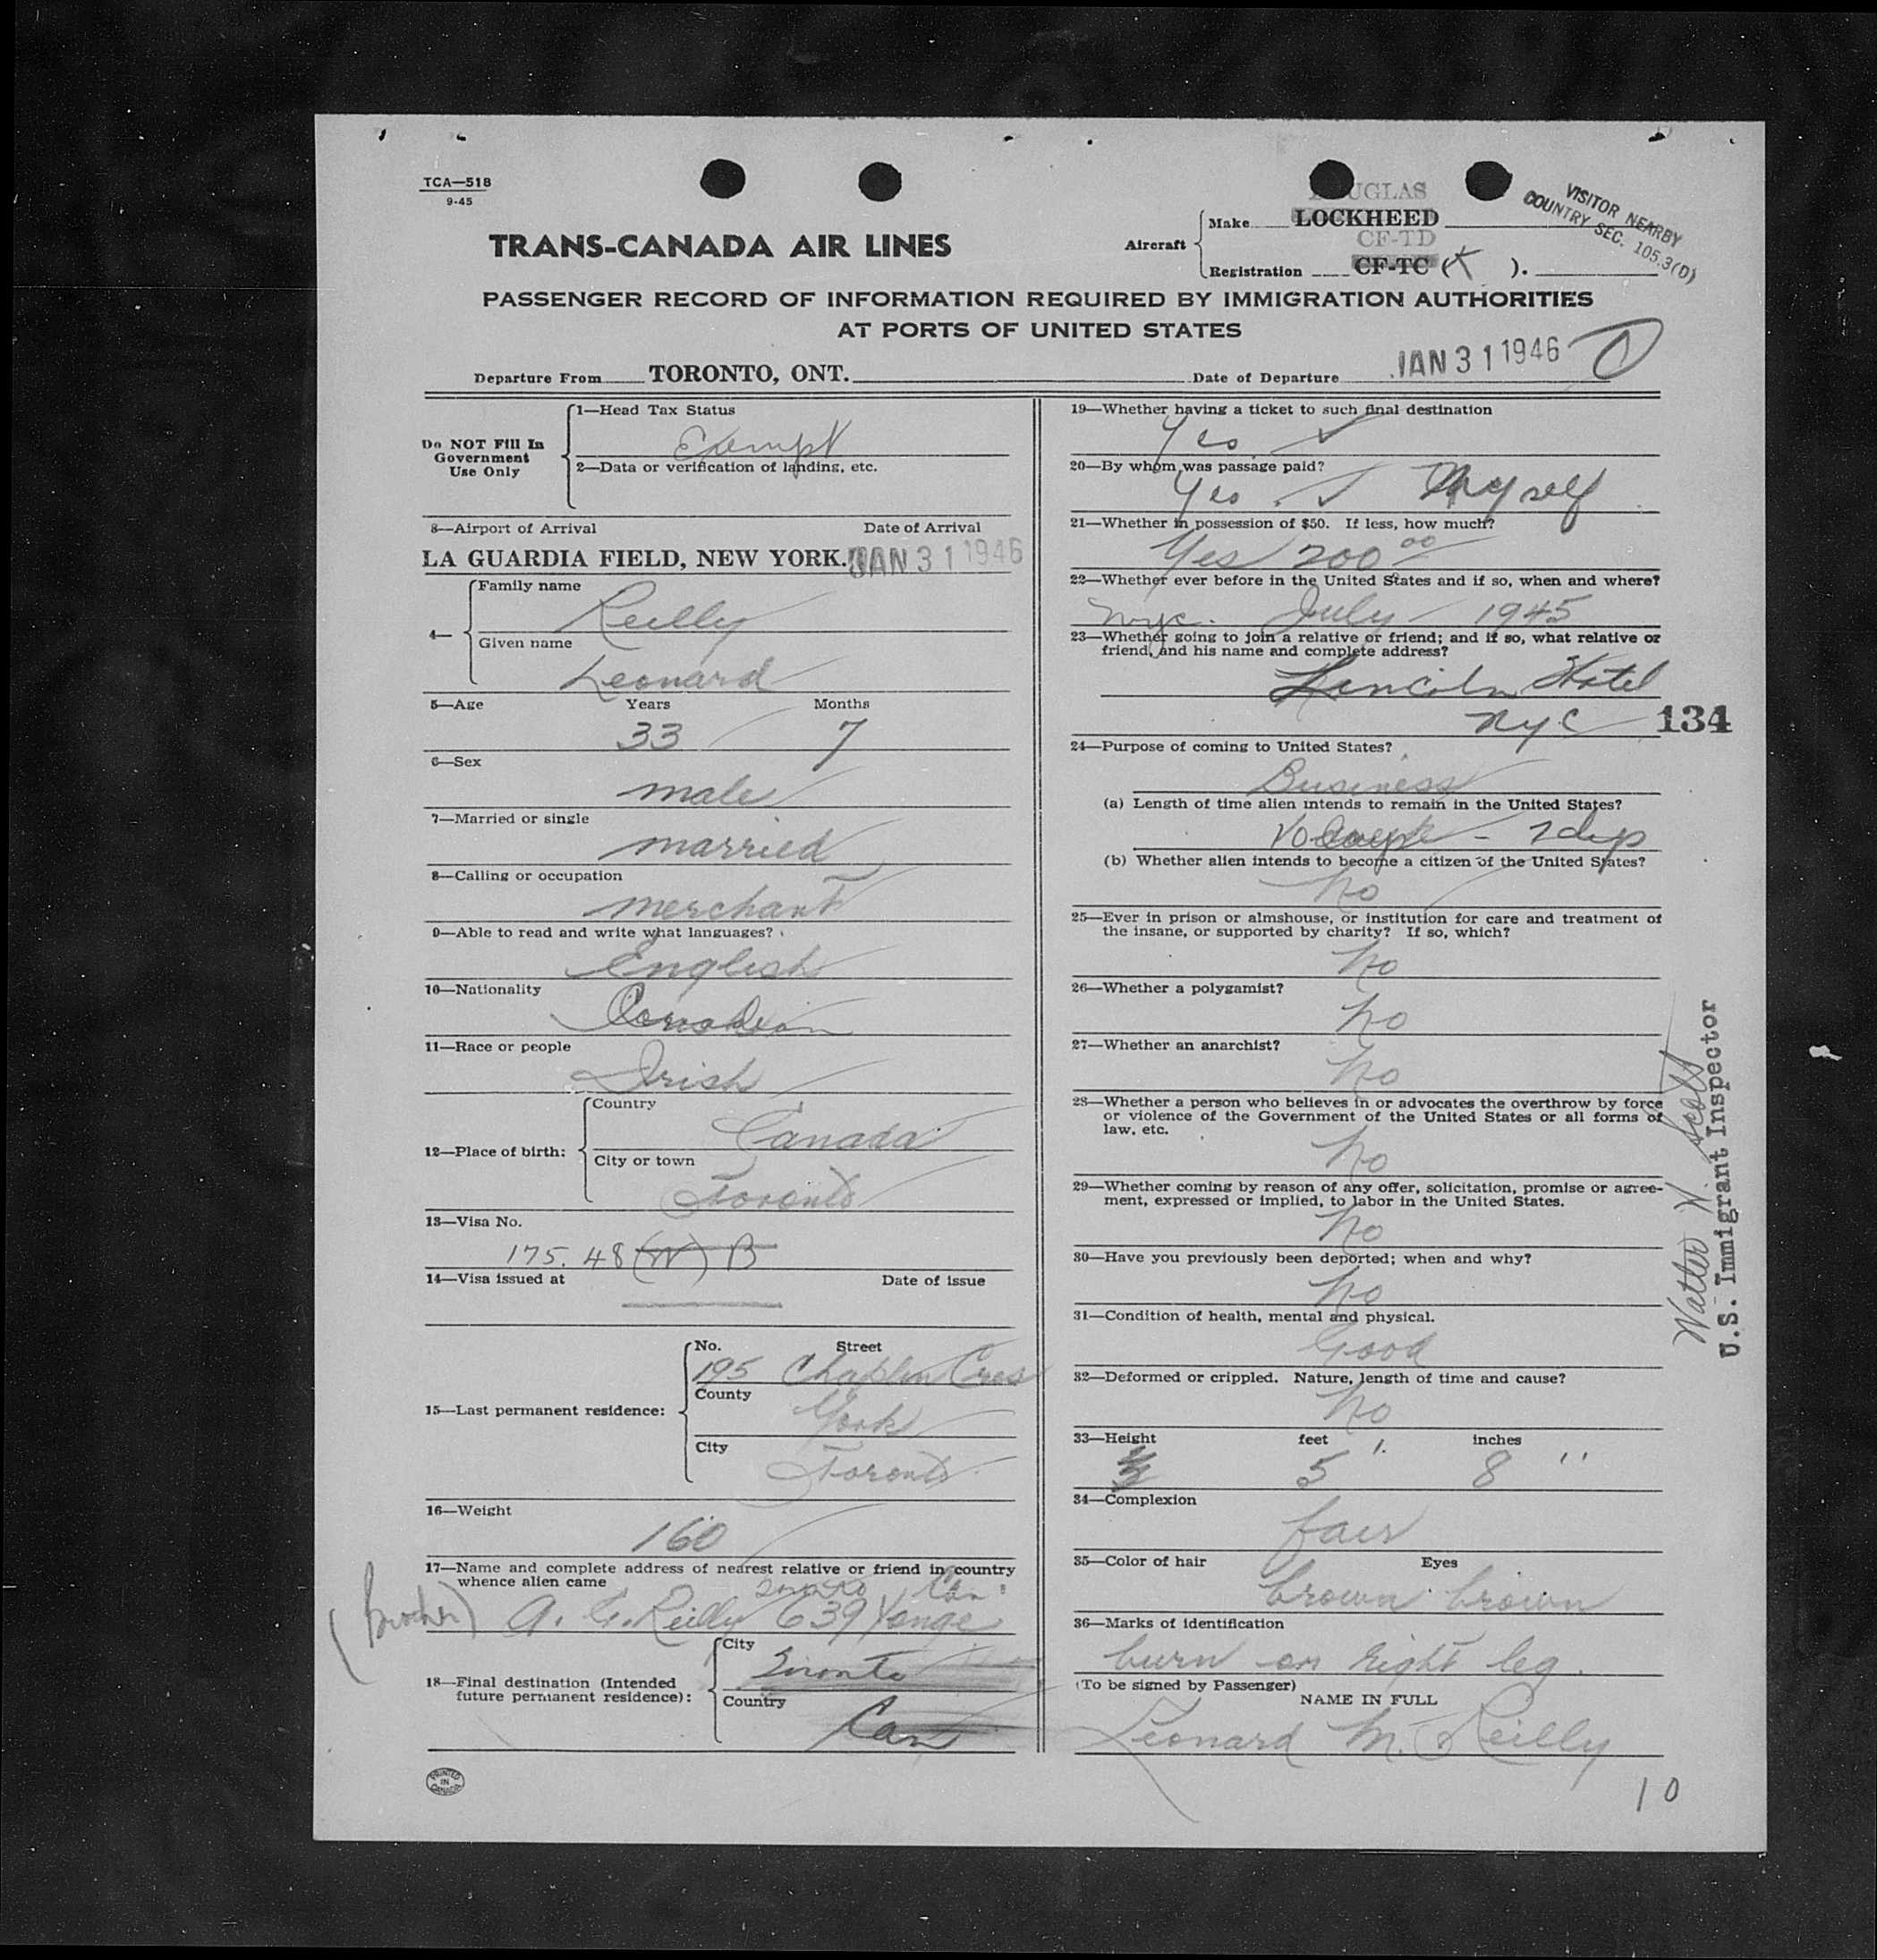 TCA—518
9-45
TRANS-CANADA AIR LINES
Aircraft
UGLAS
Make LOCKHEED
CF-TD
Registration CF-TC (K ).
VISITOR NEARBY
COUNTRY SEC. 105.3(D)
PASSENGER RECORD OF INFORMATION REQUIRED BY IMMIGRATION AUTHORITIES
AT PORTS OF UNITED STATES
Departure From TORONTO, ONT. Date of Departure JAN 31 1946
Do NOT Fill In
Government
Use Only
1—Head Tax Status
Exempt
2—Data or verification of landing, etc.
3—Airport of Arrival Date of Arrival
LA GUARDIA FIELD, NEW YORK. JAN 31 1946
4—
Family name
Reilly
Given name
Leonard
5—Age Years Months
33 7
6—Sex
male
7—Married or single
married
8—Calling or occupation
merchant
9—Able to read and write what languages?
English
10—Nationality
Canadian
11—Race or people
Irish
12—Place of birth:
Country
Canada
City or town
Toronto
13—Visa No.
175.48 (W) B
14—Visa issued at Date of issue
15—Last permanent residence:
No. Street
195 Chaplin Cres
County
York
City
Toronto
16—Weight
160
17—Name and complete address of nearest relative or friend in country
whence alien came
Toronto Can
(Brother) A. G. Reilly 639 Yonge
18—Final destination (Intended
future permanent residence):
City
Toronto
Country
Can
PRINTED
IN
CANADA
19—Whether having a ticket to such final destination
Yes
20—By whom was passage paid?
Yes Myself
21—Whether in possession of $50. If less, how much?
Yes 200 00
22—Whether ever before in the United States and if so, when and where?
NYC. July 1945
23—Whether going to join a relative or friend; and if so, what relative or
friend, and his name and complete address?
Lincoln Hotel
NYC 134
24—Purpose of coming to United States?
Business
(a) Length of time alien intends to remain in the United States?
10 days - 7 days
(b) Whether alien intends to become a citizen of the United States?
No
25—Ever in prison or almshouse, or institution for care and treatment of
the insane, or supported by charity? If so, which?
No
26—Whether a polygamist?
No
27—Whether an anarchist?
No
28—Whether a person who believes in or advocates the overthrow by force
or violence of the Government of the United States or all forms of
law, etc.
No
29—Whether coming by reason of any offer, solicitation, promise or agree-
ment, expressed or implied, to labor in the United States.
No
30—Have you previously been deported; when and why?
No
31—Condition of health, mental and physical.
Good
32—Deformed or crippled. Nature, length of time and cause?
No
33—Height feet inches
5 ' 8 ''
34—Complexion
fair
35—Color of hair Eyes
brown brown
36—Marks of identification
burn on right leg.
(To be signed by Passenger)
NAME IN FULL
Leonard M. Reilly
10
Walter W. Scott
U.S. Immigrant Inspector